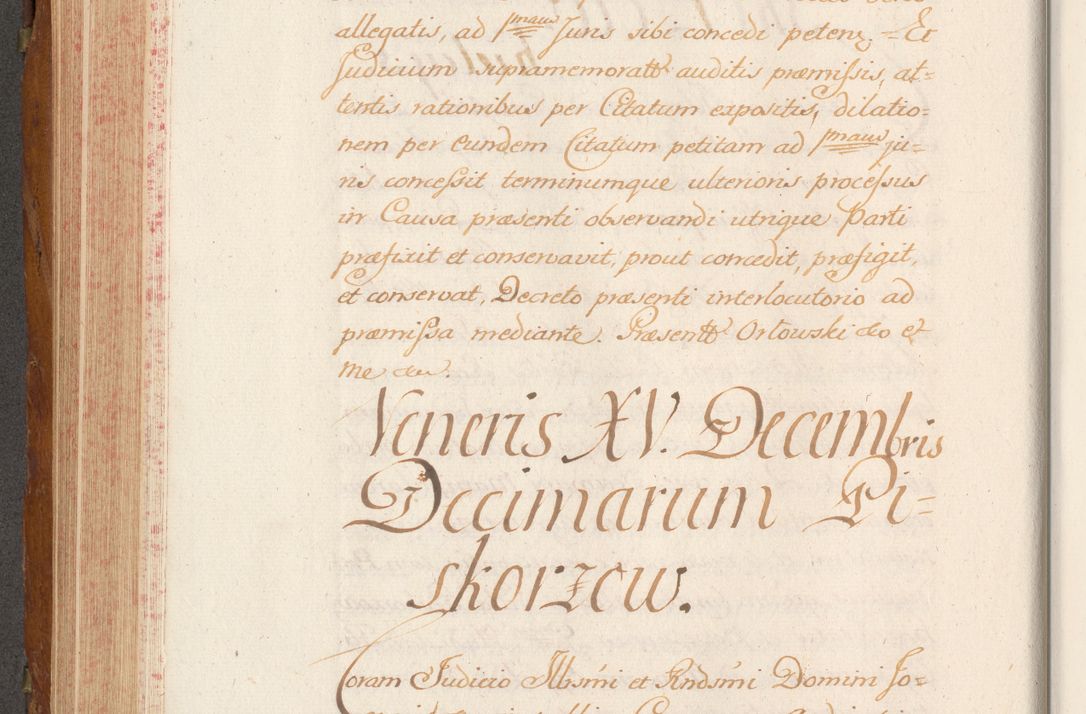 allegatis, ad 1mam Juris sibi concedi petens = Et
Judicium supramemoratt auditis præmissis, at=
tentis rationibus per Citatum expositis, dilatio=
nem per Eundem Citatum petitam ad 1mam ju=
ris concessit terminumque ulterioris processus
in Causa præsenti observandi utrique Parti
præfixit et conservavit, prout concedit, præfigit,
et conservat, Decreto præsenti interlocutorio ad
præmissa mediante. Præsentt Orłowski et
me
Veneris XV. Decembris
Decimarum Pi=
skorzew.
Coram Judicio Illsmi et Rndsmi Domini Jo=